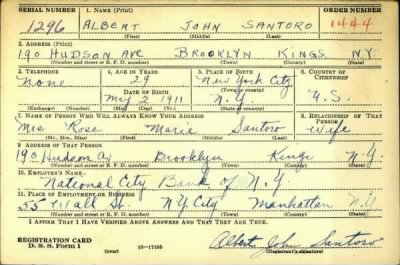 SERIAL NUMBER 1. NAME (Print) ORDER NUMBER
1296 ALBERT JOHN SANTORO 1444
(First) (Middle) (Last)
2. ADDRESS (Print)
190 HUDSON AVE BROOKLYN KINGS N.Y.
(Number and street or R. F. D. number) (Town) (County) (State)
3. TELEPHONE 4. AGE IN YEARS 5. PLACE OF BIRTH 6. COUNTRY OF CITIZENSHIP
None 29 New York City
DATE OF BIRTH (Town or county)
May 2 1911 N.Y. U.S.
(Exchange) (Number) (Mo.) (Day) (Yr.) (State or country)
7. NAME OF PERSON WHO WILL ALWAYS KNOW YOUR ADDRESS 8. RELATIONSHIP OF THAT PERSON
Mrs Rose Marie Santoro Wife
(Mr., Mrs., Miss) (First) (Middle) (Last)
9. ADDRESS OF THAT PERSON
190 Hudson Av Brooklyn Kings N.Y.
(Number and street or R. F. D. number) (Town) (County) (State)
10. EMPLOYER'S NAME
National City Bank of N.Y
11. PLACE OF EMPLOYMENT OR BUSINESS
55 Wall St. N.Y City Manhattan N.Y
(Number and street or R. F. D. number) (Town) (County) (State)
I AFFIRM THAT I HAVE VERIFIED ABOVE ANSWERS AND THAT THEY ARE TRUE.
REGISTRATION CARD Albert John Santoro
D. S. S. Form 1 (over) 16-17105 (Registrant's signature)